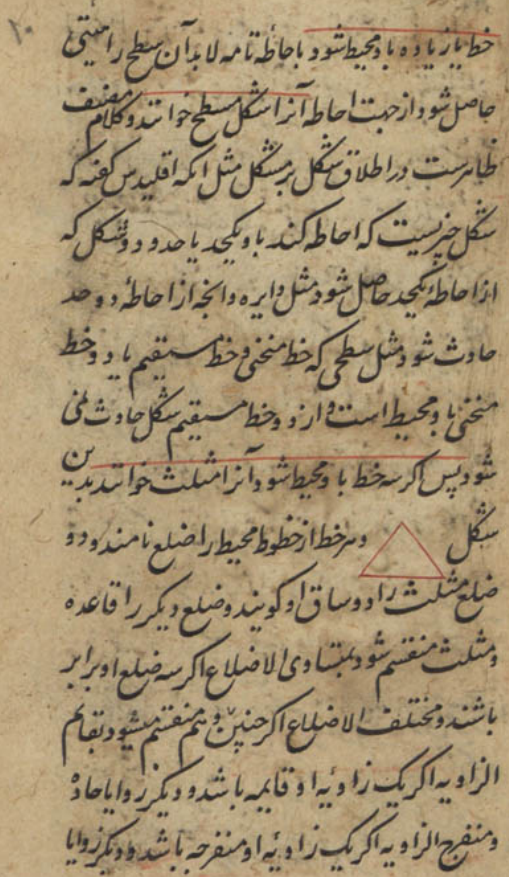 خط یا زیاده باو محیط شود باحاطه تامه لابد آن سطح را هیئتی
حاصل شود از جهت احاطه آنرا شکل مسطح خوانند و کلام مصنف
ظاهرست در اطلاق شکل بر مشکل مثل انکه اقلیدس کفته که
شکل چیزیست که احاطه کند باو یکحد یا حدود و شکل که
از احاطه یکحد حاصل شود مثل دایره وانچه از احاطه دو حد
حادث شود مثل سطحی که خط منحنی و خط مستقیم یا دو خط
منحنی باو محیط است و از دو خط مستقیم شکل حادث نمی
شود پس اکر سه خط باو محیط شود آنرا مثلث خوانند بدین
شکل وهر خط از خطوط محیط را ضلع نامند و دو
ضلع مثلث را دو ساق او کویند وضلع دیکر را قاعده
ومثلث منقسم شود بمتساوی الاضلاع اکر سه ضلع او برابر
باشند و مختلف الاضلاع اکر چنین وهم منقسم میشود بقایم
الزاویه اکر یک زاویه او قایمه باشد و دیکر زوایا حاده
ومنفرج الزاویه اکر یک زاویه او منفرجه باشد و دیکر زوایا